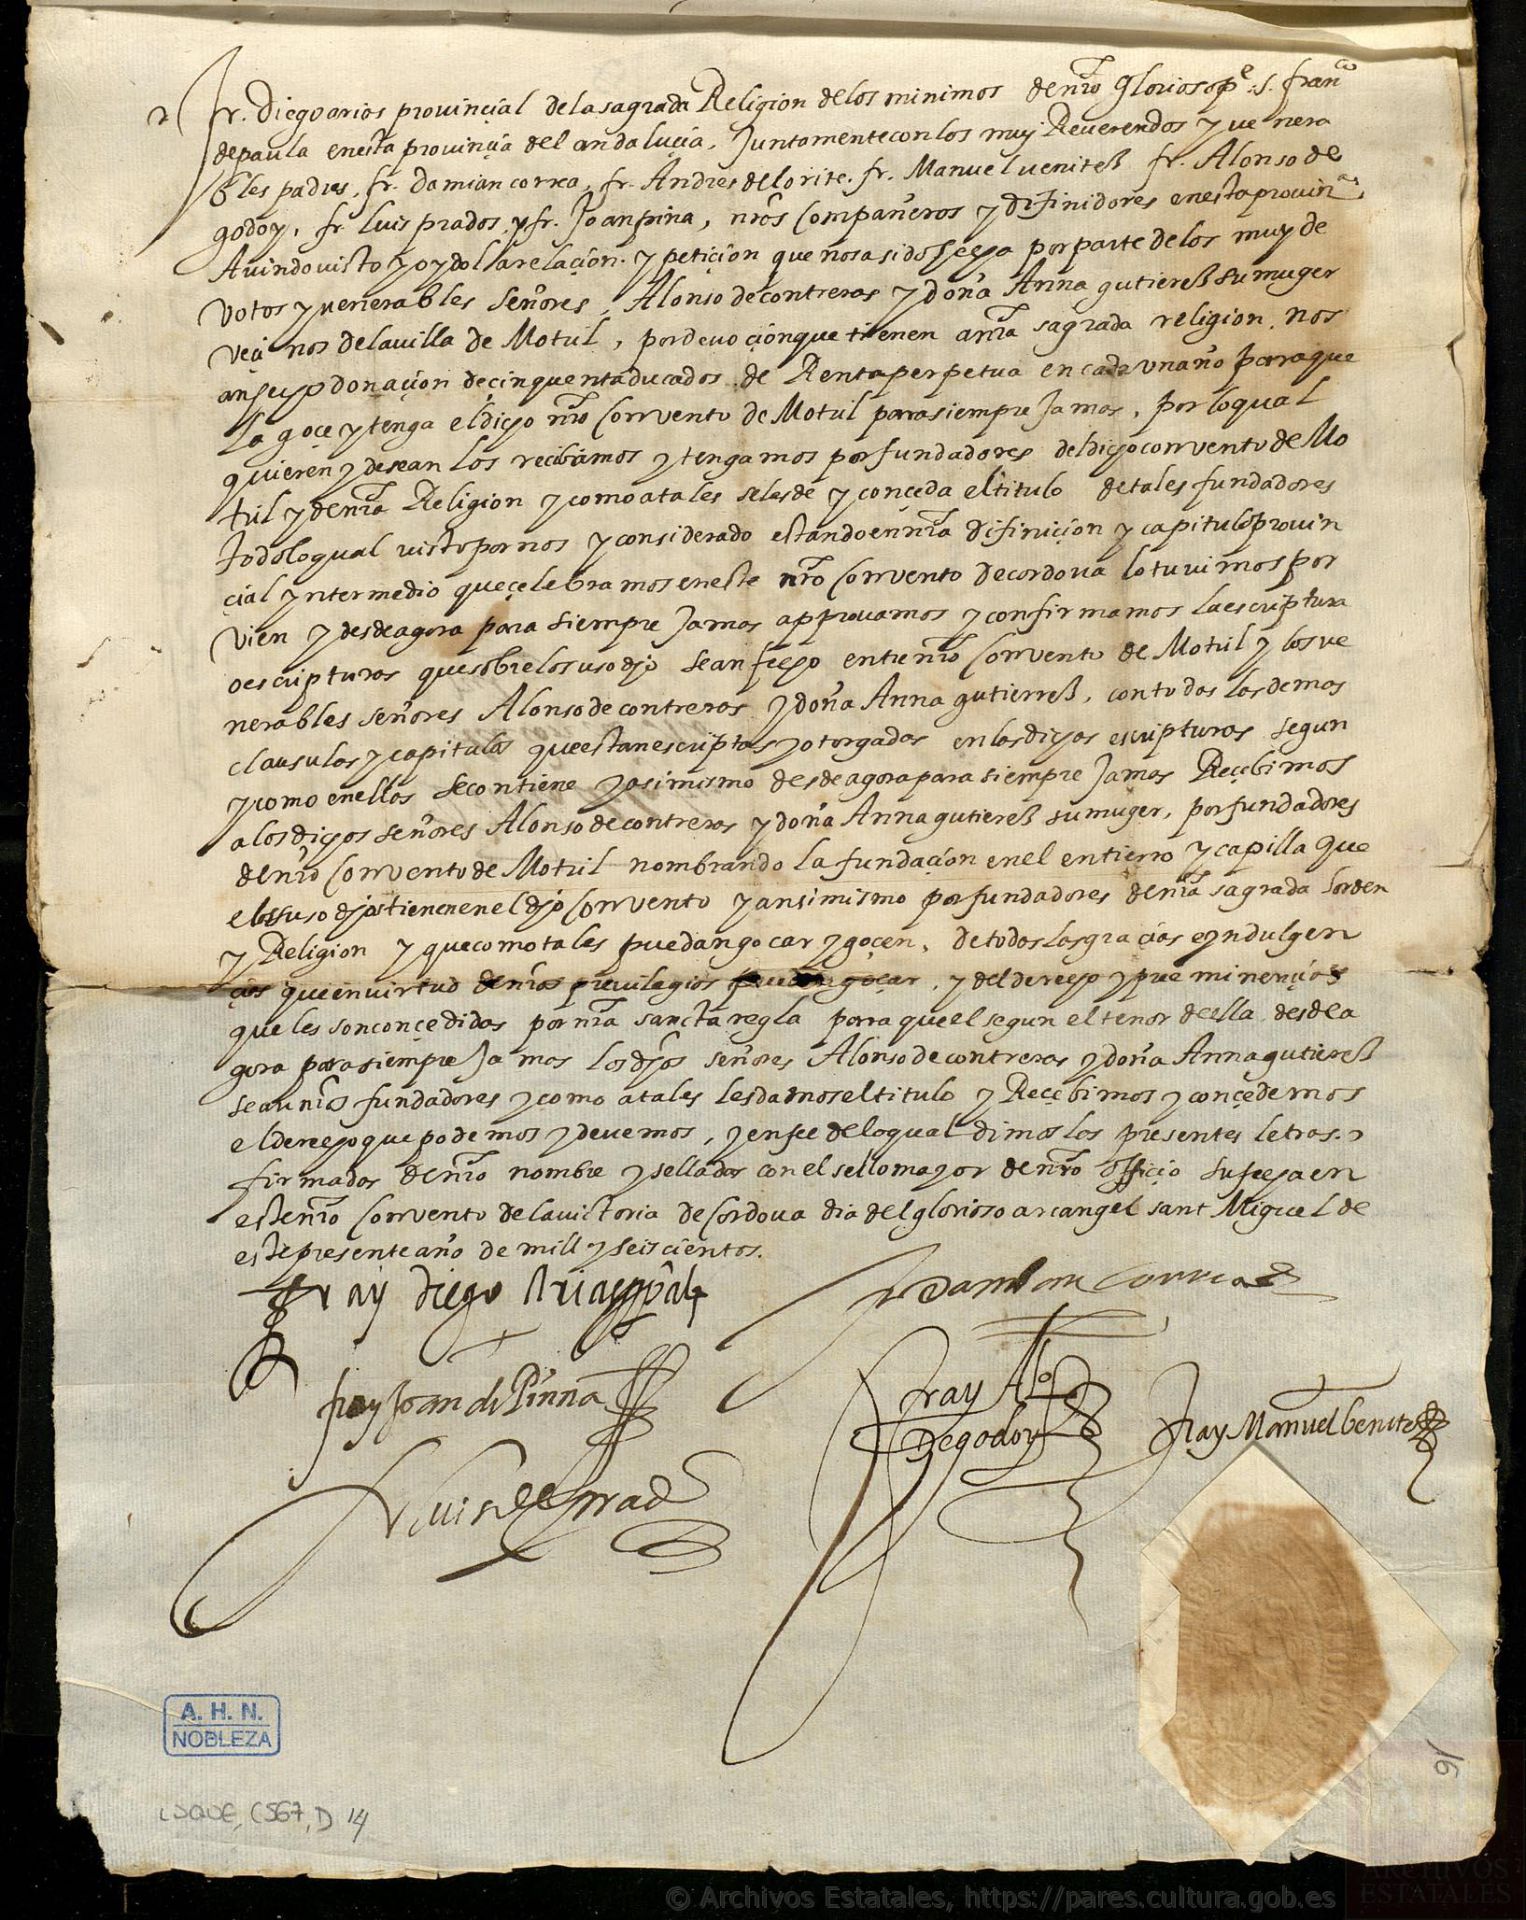 fr. Diego arias provinçial de la sagrada Religion de los minimos de nro Glorioso pe. s. franco
de paula en esta provinçia del andaluçia. Juntamente con los muy Reverendos y venera
bles padres, fr. damian correa, fr. Andres de lorite. fr. Manuel venites fr. Alonso de
godoy, fr. luis prados, y fr. Joan pina, nros Compañeros y difinidores en esta provina.
Auindo visto y oydo lla relaçion. y petiçion que nos a sido fecha por parte de los muy de
votos y venerables Señores, Alonso de contreras y doña Anna gutieres su muger
veçinos de la villa de Motril, por devoçion que tienen a nra sagrada religion. nos
an fecho donaçion de cinquenta ducados de Renta perpetua en cada un año para que
la goçe y tenga el dicho nro Convento de Motril para siempre Jamas, por lo qual
quieren y desean los recibamos y tengamos por fundadores del dicho convento de Mo
tril y de nra Religion y como a tales se les de y conçeda el titulo de tales fundadores
todo lo qual visto por nos y considerado estando en nra difiniçion y capitulo provin
çial yntermedio que çelebramos en este nro Convento de cordova lo tuvimos por
vien y desde agora para siempre Jamas approvamos y confirmamos la escriptura
o escripturas que sobre lo suso dho sean fecho entre nro Convento de Motril y los ve
nerables señores Alonso de contreras y doña Anna gutierres, con todas las demas
clausulas y capitulos que estan escriptas y otorgadas en las dichas escripturas segun
y como en ellas se contiene y asimismo desde agora para siempre Jamas Reçebimos
a los dichos señores Alonso de contreras y doña Anna gutieres su muger, por fundadores
de nro Convento de Motril nombrando la fundaçion en el entierro y capilla que
e los suso dhos tienen en el dho Convento y ansimismo por fundadores de nra sagrada orden
y Religion y que como tales puedan goçar y goçen, de todas las graçias e yndulgen
çias que en virtud de nros previlegios puedan goçar, y del derecho y preminençias
que les son conçedidas por nra sancta regla para que el segun el tenor de ella desde a
gora para siempre Jamas los dhos señores Alonso de contreras y doña Anna gutieres
sean nros fundadores y como a tales les damos el titulo y Reçebimos y conçedemos
el derecho que podemos y devemos, y en fee de lo qual dimos las presentes letras.
firmadas de nro nombre y selladas con el sello mayor de nro offiçio su fecha en
este nro Convento de la victoria de Cordova dia del glorioso arcangel sant Miguel de
este presente año de mill y seiscientos.
fray diego Arias pval
fr damian Correa
fray Joan de Pinna
fray Alo
de godoy
fray Manuel benites
fr luis de prados
A. H. N.
NOBLEZA
OSUNA, C 567, D 14
16
© Archivos Estatales, https://pares.cultura.gob.es
ARCHIVOS
ESTATALES